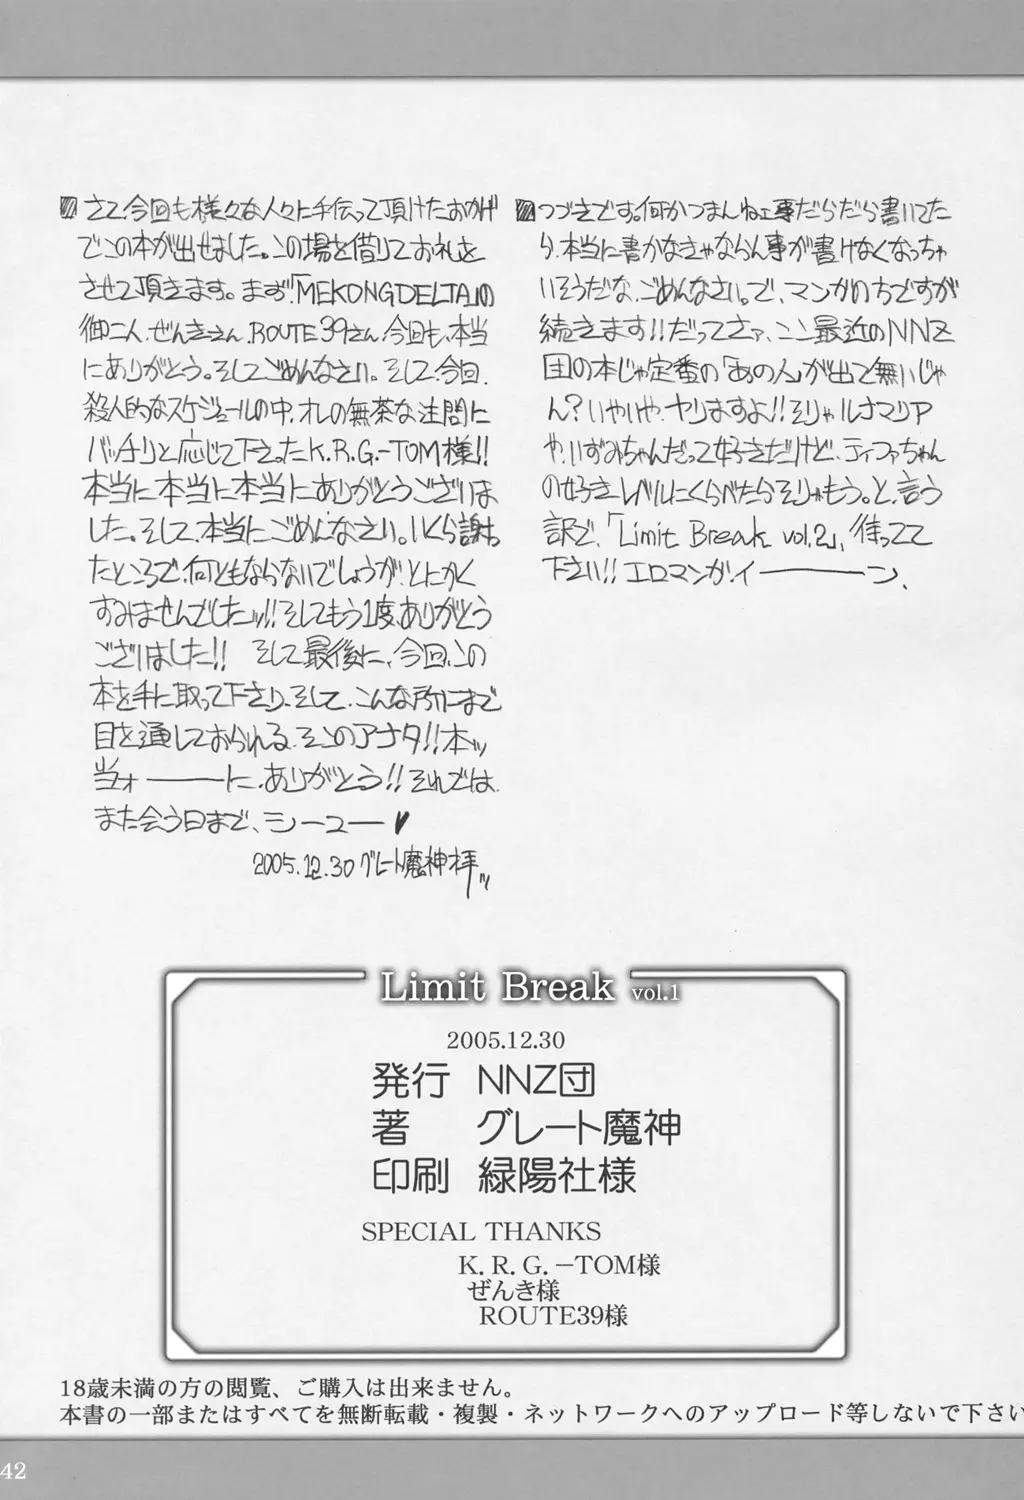 さて、今回も様々な人々に手伝って頂けたおかげ
でこの本が出せました。この場を借りてお礼を
させて頂きます。まず「MEKONGDELTA」の
御二人、ぜんきさん、ROUTE39さん、今回も、本当
にありがとう。そしてごめんなさい。そして、今回、
殺人的なスケジュールの中、オレの無茶な注問に
バッチリと応じて下さったK.R.G.-TOM様!!
本当に本当に本当にありがとうございま
した。そして、本当にごめんなさい。いくら謝っ
たところで、何ともならないでしょうが、とにかく
すみませんでしたッ!!そしてもう1度ありがとう
ございました!! そして最後に、今回、この
本を手に取って下さり、そして、こんな所にまで
目を通しておられる、そこのアナタ!!本ッ
当ォーーーに、ありがとう!!それでは、
また会う日まで、シーユー♥
2005.12.30 グレート魔神拝ッ
つづきです。何かつまんねェ事だらだら書いてた
ら、本当に書かなきゃならん事が書けなくなっちゃ
いそうだな、ごめんなさい。で、マンガのちですが
続きます!!だってさァ、ここ最近のNNZ
団の本じゃ定番の「あの人」が出て無いじゃ
ん?いやいや、ヤリますよ!!そりゃルナマリア
や、いずみちゃんだって好きだけど、ティファちゃん
の好きレベルにくらべたらそりゃもう。と、言う
訳で、「Limit Break vol.2」、待ってて
下さい!!エロマンガ、イーーーン、
Limit Break vol.1
2005.12.30
発行 NNZ団
著 グレート魔神
印刷 緑陽社様
SPECIAL THANKS
K.R.G.-TOM様
ぜんき様
ROUTE39様
18歳未満の方の閲覧、ご購入は出来ません。
本書の一部またはすべてを無断転載・複製・ネットワークへのアップロード等しないで下さい
42